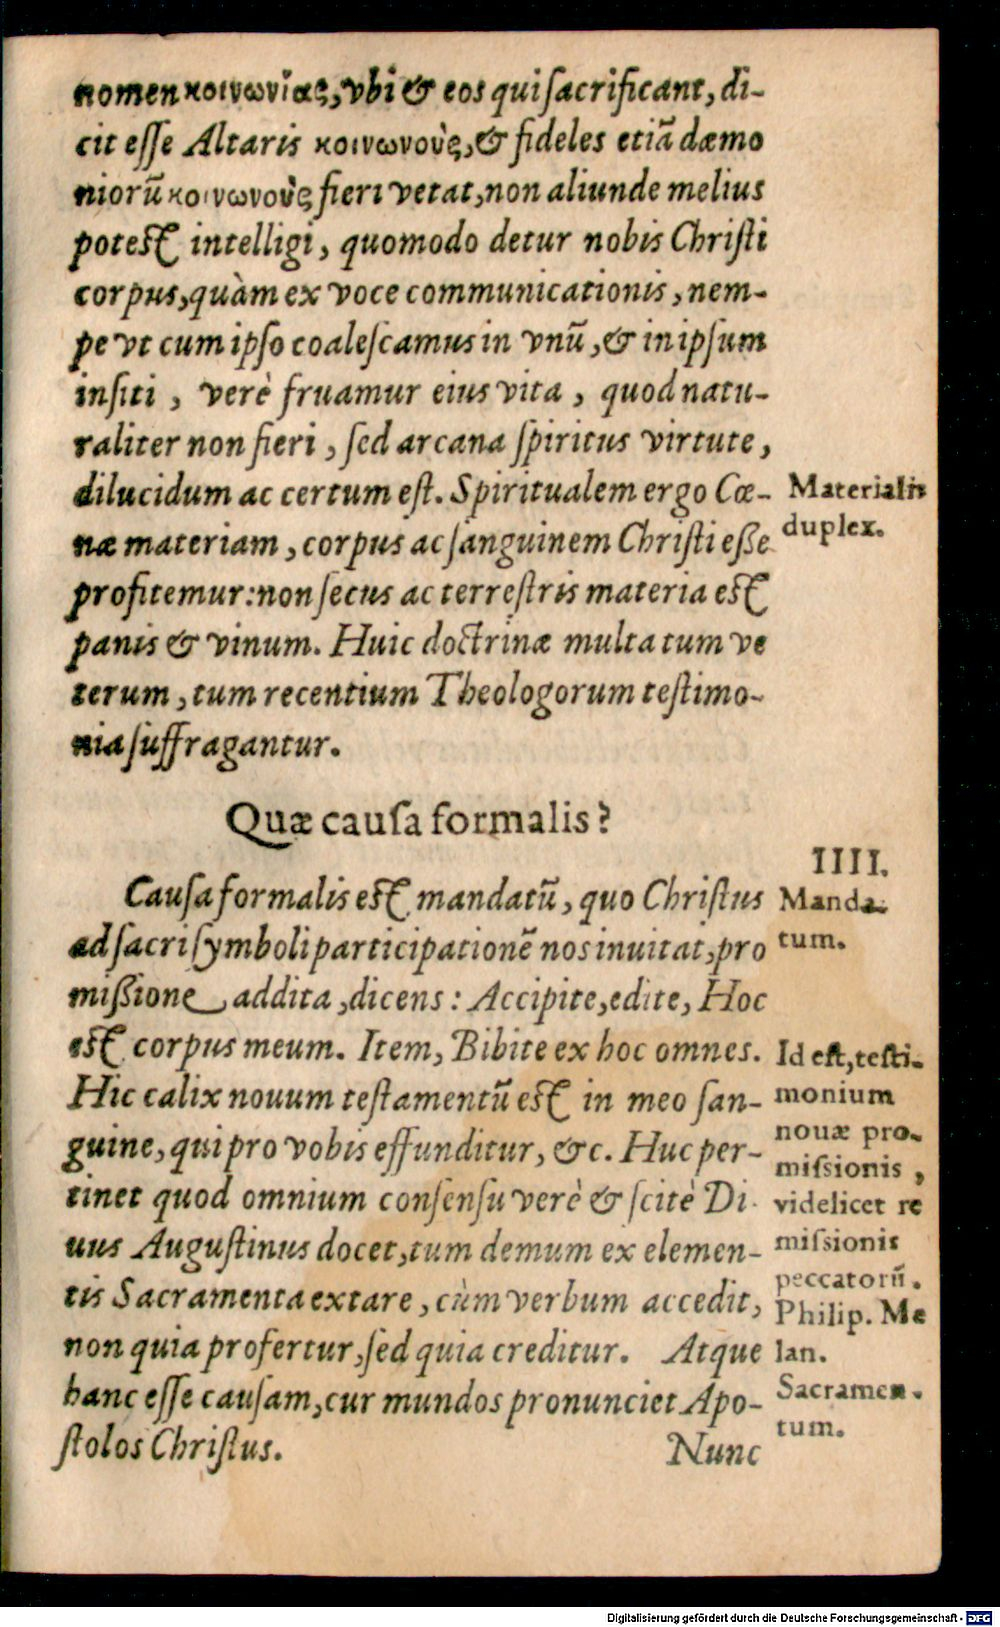 nomen κοινωνίας, vbi & eos qui ſacrificant, di-
cit eſſe Altaris κοινωνοὺς, & fideles etiã dæmo
niorũ κοινωνοὺς fieri vetat, non aliunde melius
poteſt intelligi, quomodo detur nobis Chriſti
corpus, quàm ex voce communicationis, nem-
pe vt cum ipſo coaleſcamus in vnũ, & in ipſum
inſiti, verè fruamur eius vita, quod natu-
raliter non fieri, ſed arcana ſpiritus virtute,
dilucidum ac certum eſt. Spiritualem ergo Cœ-
næ materiam, corpus ac ſanguinem Chriſti eße
profitemur: non ſecus ac terreſtris materia eſt
panis & vinum. Huic doctrinæ multa tum ve
terum, tum recentium Theologorum teſtimo-
nia ſuffragantur.
Materialis
duplex.
Quæ cauſa formalis?
Cauſa formalis eſt mandatũ, quo Chriſtus
ad ſacri ſymboli participationẽ nos inuitat, pro
mißione addita, dicens: Accipite, edite, Hoc
eſt corpus meum. Item, Bibite ex hoc omnes.
Hic calix nouum teſtamentũ eſt in meo ſan-
guine, qui pro vobis effunditur, &c. Huc per-
tinet quod omnium conſenſu verè & ſcitè Di-
uus Auguſtinus docet, tum demum ex elemen-
tis Sacramenta extare, cùm verbum accedit,
non quia profertur, ſed quia creditur. Atque
hanc eſſe cauſam, cur mundos pronunciet Apo-
ſtolos Chriſtus.
Nunc
IIII.
Manda-
tum.
Id eſt, teſti-
monium
nouæ pro-
miſsionis,
videlicet re
miſsionis
peccatorũ.
Philip. Me
lan.
Sacramen-
tum.
Digitalisierung gefördert durch die Deutsche Forschungsgemeinschaft - DFG